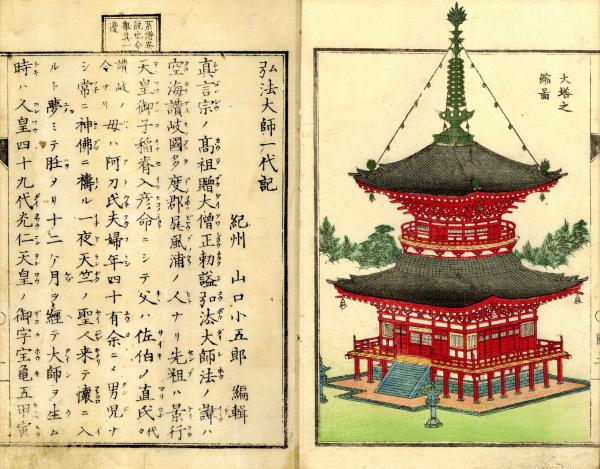 大塔之
縮圖
系譜異
説也今
弘法大師一代記
紀州 山口小五郎 編輯
真言宗ノ髙祖贈大僧正勅謚弘法大師法ノ諱ハ
空海讃岐國多度郡屏風浦ノ人ナリ先祖ハ景行
天皇御子稲脊入彦命ニシテ父ハ佐伯ノ直氏代々
讃岐ノ令ナリ 母ハ阿刀氏夫婦年四十有余ニメ男児ナ
シ常ニ神佛ニ禱ル一夜天竺ノ聖人来テ懐ニ入
ルト夢ミテ ヲリ十二ヶ月ヲ經テ大師ヲ生ム
時ハ人皇四十九代光仁天皇ノ御宇宝亀五甲寅